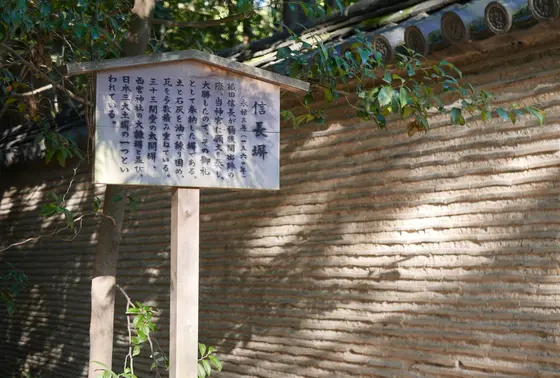 信長塀
永禄三年(一五六〇年)
織田信長が桶狭間出陣の
際、当神宮に願文を奏し、
大勝したので、その御礼
として奉納した塀である。
土と石灰を油で練り固め、
瓦を多数積み重ねている。
三十三間堂の太閤塀、
西宮神社の大練塀と並び
日本三大土塀の一つとい
われている。